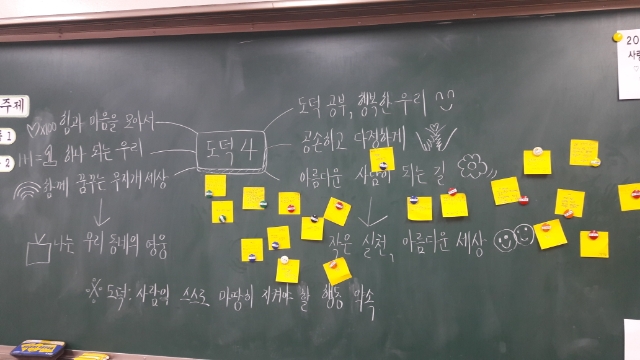 주제
힘과 마음을 모아서
하나 되는 우리
함께 꿈꾸는 무지개 세상
나는 우리 동네의 영웅
도덕 4
도덕 공부, 행복한 우리
공손하고 다정하게
아름다운 사람이 되는 길
작은 실천, 아름다운 세상
도덕: 사람이 스스로 마땅히 지켜야 할 행동 약속
20
1
2